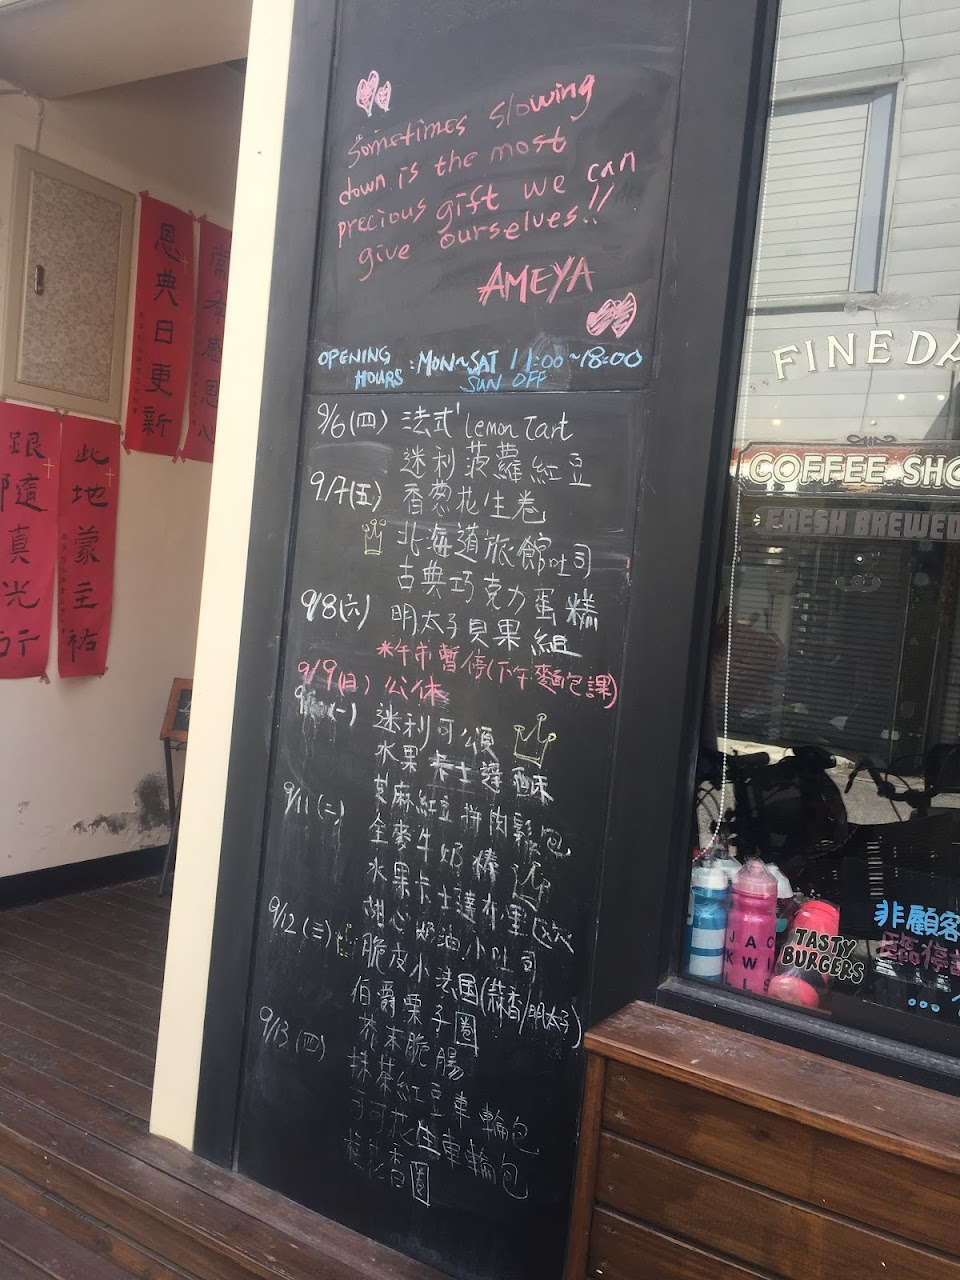 Sometimes slowing
down is the most
precious gift we can
give ourselves!!
AMEYA
OPENING HOURS : MON~SAT 11:00~18:00
SUN OFF
9/6(四) 法式 Lemon Tart
迷利菠蘿紅豆
9/7(五) 香蔥花生卷
北海道旅館吐司
古典巧克力蛋糕
9/8(六) 明太子貝果組
*午市暫停(下午麵包課)
9/9(日) 公休
(一) 迷利可頌
水果卡士達酥
9/11(二) 蔓麻紅豆拼肉鬆包
全麥牛奶棒
水果卡士達布里
9/12(三) 甜心奶油小吐司
脆皮小法国(蒜香/明太子)
伯爵栗子圈
9/13(四) 芥末脆腸
抹茶紅豆車輪包
可可花生車輪包
香圈
恩典日更新
常存感恩心
跟隨真光行
此地蒙主祐
FINEDA
COFFEE SHO
FRESH BREWED
JACK WILLS
TASTY
BURGERS
非顧客